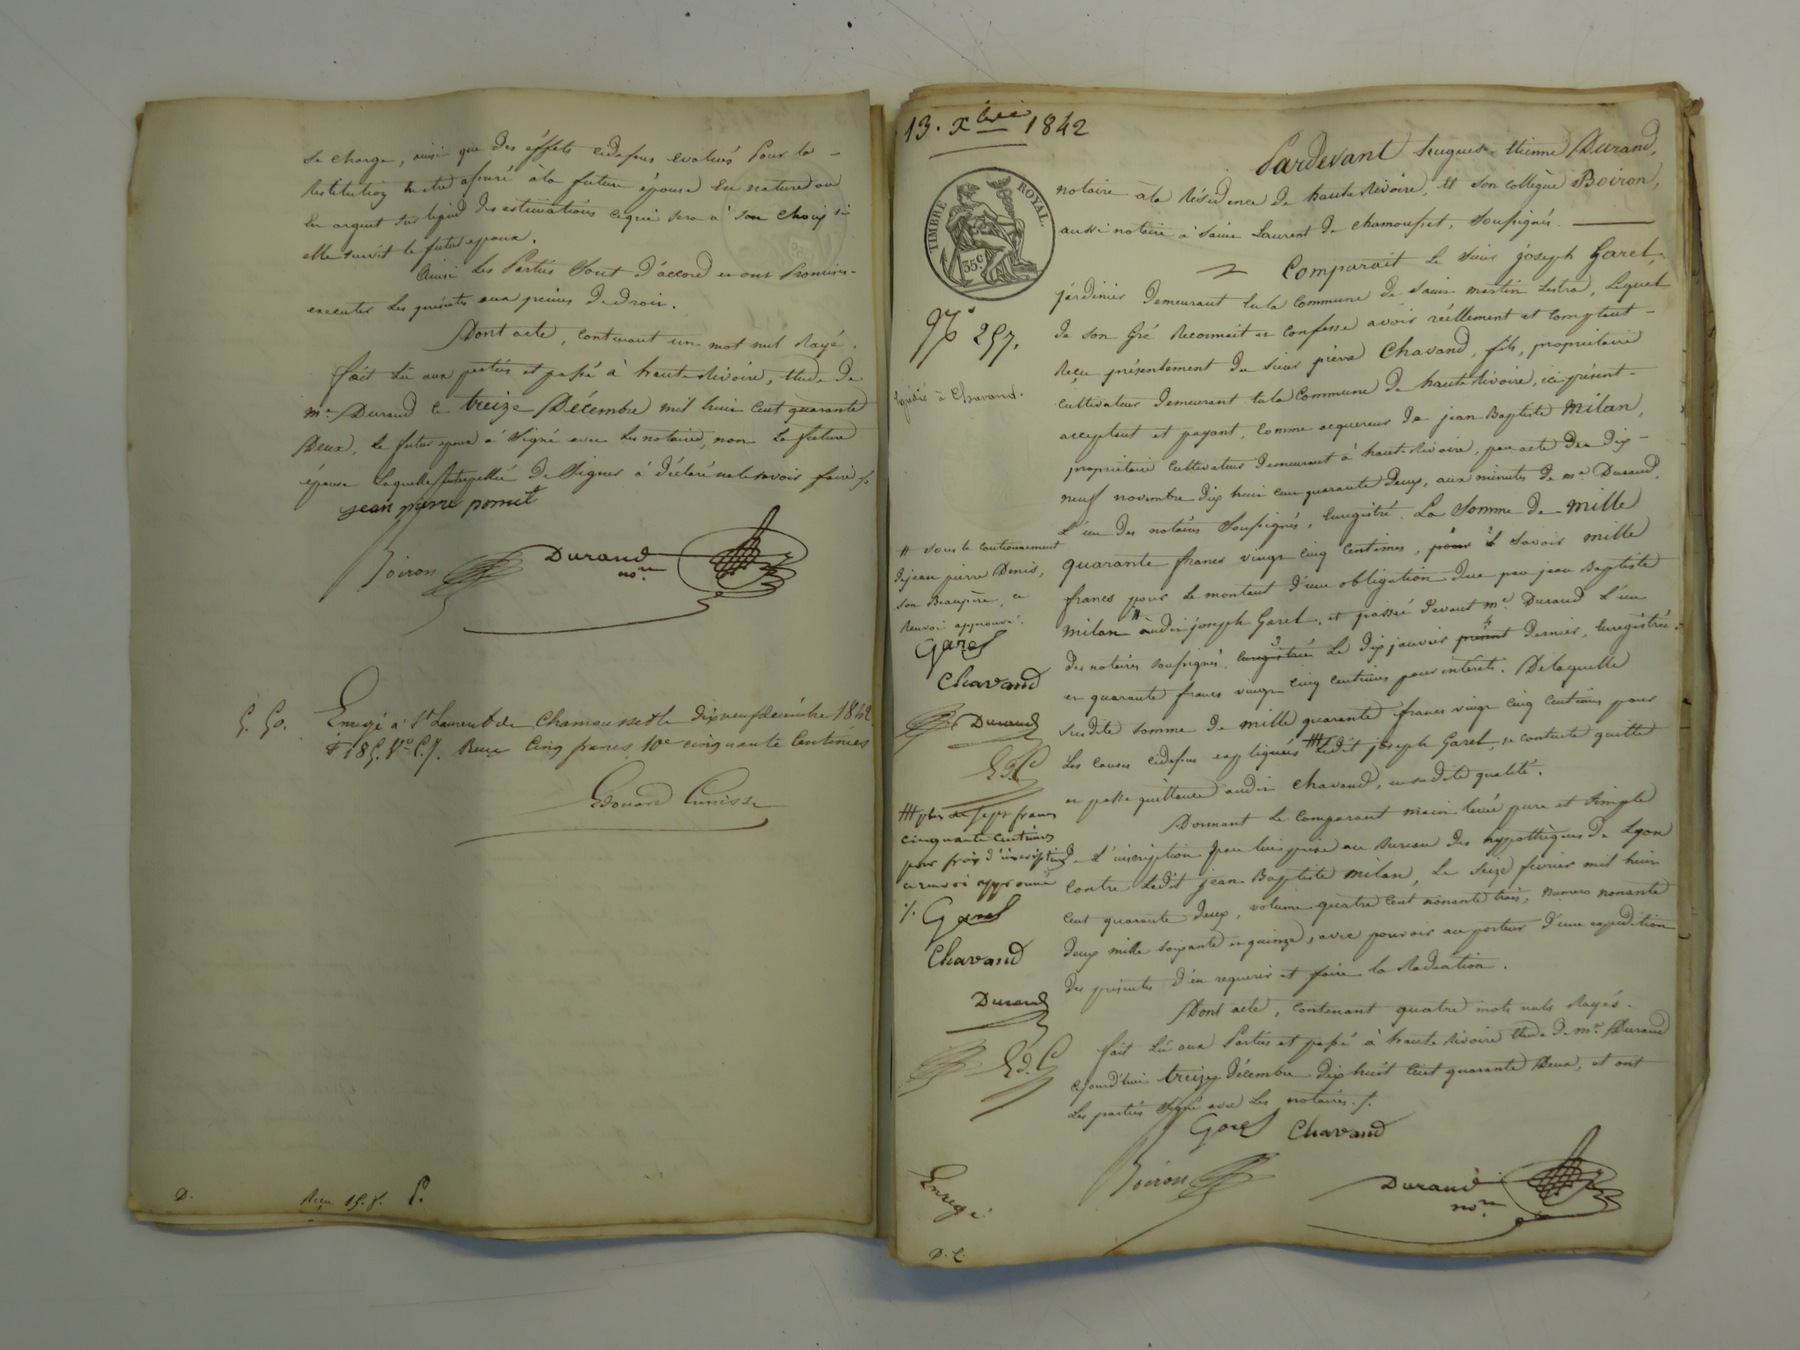 se charge, ainsi que des éffets cidessus evalués Pour la
Restitution être assuré à la future épouse En nature ou
En argent sur lepied des estimations cequi sera à son choix si
elle survit le futur epoux.
Ainsi Les Parties sont d'accord et ont Promis
executer Les présentes aux peines de droit.
Dont acte, contenant un mot nul Rayé.
fait Lu aux parties et passé à haute Rivoire, Etude de
me Durand le treize Décembre mil huit cent quarante
Deux, Le futur epoux a signé avec Les notaires, non La future
épouse Laquelle Interpellée de signer à déclaré nelesavoir faire ./.
jean pierre pomet
Boiron Durand
nore
5. 50. Enregé à St Laurent de Chamousset le dix neuf décembre 1842
fo 185. Vo C. 7. Reçu Cinq francs 10e cinquante Centimes
Edouard
D. Reçu 15. f.
13. Xbre 1842
Pardevant hugues-Etienne Durand,
notaire à la Résidence de haute Rivoire, Et son collègue Boiron,
aussi notaire à Saint Laurent de Chamousset, soussignés.
TIMBRE ROYAL
35c
Comparait Le sieur joseph Garel,
jardinier demeurant En la Commune de Saint martin Lestra, Lequel
No 257.
de son Gré Reconnait et confesse avoir réellement et comptant
Reçu présentement du sieur pierre Chavand, fils, propriétaire
Expédié à Chavand.
cultivateur demeurant En la Commune de haute Rivoire, ici présent
acceptant et payant, comme acquereur de jean Baptiste Milan,
propriétaire cultivateur demeurant à haute Rivoire, par acte du dix
neuf novembre dix huit cent quarante deux, aux minutes de me Durand,
L'un des notaires soussignés, Enregistré. La somme de mille
quarante francs vingt cinq centimes, pour savoir mille
francs pour Le montant d'une obligation due par jean Baptiste
milan # audit joseph Garel, et passée devant me Durand L'un
des notaires soussignés, Enregistrée Le dix janvier présent dernier, Enregistrée
et quarante francs vingt cinq centimes pour intérêts. De laquelle
susdite somme de mille quarante francs vingt cinq centimes pour
Les causes cidessus expliquées ### Ledit joseph Garel, se contente quitte
et passe quittance audit Chavand, en sadite qualité.
# sous le cautionnement
dejean pierre Denis,
son Beaupère, ce
Renvoi approuvé.
Garel
Chavand
Durand
Ed. C
### plus de sept francs
cinquante centimes
pour frais d'inscription
ce renvoi approuvé
./. Garel
Chavand
Durand
Ed. C
Donnant Le Comparant main levée pure et simple
de L'inscription par lui prise au Bureau des hypothèques de Lyon
contre Ledit jean Baptiste Milan, Le seize fevrier mil huit
cent quarante deux, volume quatre cent nonante trois, Numero nonante
deux mille soixante et quinze, avec pouvoir au porteur d'une expédition
des présentes d'en requerir et faire la Radiation.
Dont acte, contenant quatre mots nuls Rayés.
fait Lu aux Parties et passé à haute Rivoire Etude de me Durand
cejourd'hui treize décembre dix huit cent quarante Deux, et ont
Les parties signé avec Les notaires ./.
Garel Chavand
Boiron Durand
nore
Enregé
D. C.